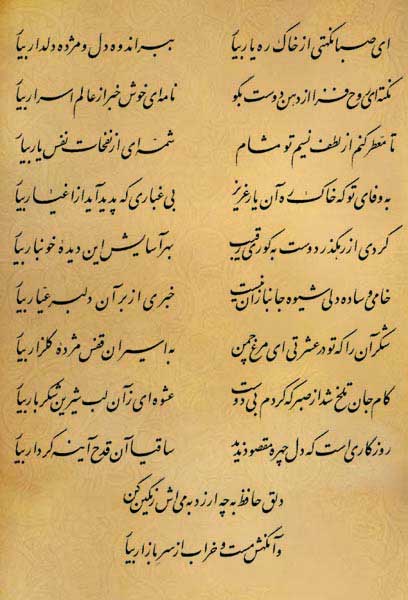 ای صبا نکهتی از خاک ره یار بیار ببر اندوه دل و مژده دلدار بیار
نکته‌ای روح فزا از دهن دوست بگو نامه‌ای خوش خبر از عالم اسرار بیار
تا معطر کنم از لطف نسیم تو مشام شمه‌ای از نفحات نفس یار بیار
به وفای تو که خاک ره آن یار عزیز بی غباری که پدید آید از اغیار بیار
گردی از رهگذر دوست به کوری رقیب بهر آسایش این دیده خونبار بیار
خامی و ساده دلی شیوه جانبازان نیست خبری از بر آن دلبر عیار بیار
شکر آن را که تو در عشرتی ای مرغ چمن به اسیران قفس مژده گلزار بیار
کام جان تلخ شد از صبر که کردم بی دوست عشوه‌ای زآن لب شیرین شکربار بیار
روزگاری است که دل چهره مقصود ندید ساقیا آن قدح آینه کردار بیار
دلق حافظ به چه ارزد به می‌اش رنگین کن
وآنگهش مست و خراب از سر بازار بیار